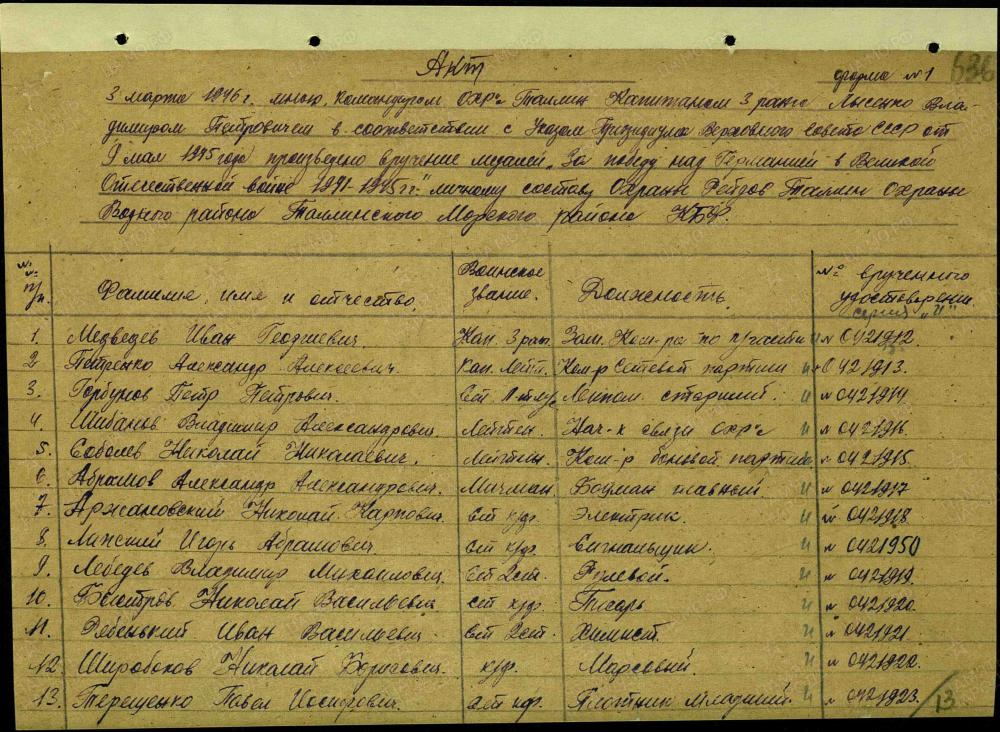 Акт
форма №1
3 марта 1946 г. мною, командиром охр-а Таллин Капитаном 3 ранга Лысенко Вла-
димиром Петровичем в соответствии с Указом Президиума Верховного совета СССР от
9 мая 1945 года произведено вручение медалей „За победу над Германией в Великой
Отечественной войне 1941-1945 гг." личному составу Охраны Рейдов Таллин Охраны
Водного района Таллинского Морского района КБФ.
№№ п/п. Фамилие, имя и отчество. Воинское звание. Должность № врученного удостоверения серия „И"
1. Медведев Иван Георгиевич. Кап. 3 ран. Зам. Ком-ра по п/части И № 0421912.
2 Петренко Александр Алексеевич. Кап. Лейт. Ком-р Сетевой партии И № 0421913.
3. Горбунов Петр Петрович. старший. И № 0421914
4. Шибанов Владимир Александрович. Лейтен. Нач-к связи охр-а И № 0421916.
5. Соболев Николай Николаевич. Лейтен. Ком-р боновой партии № 0421915.
6. Абрамов Александр Александрович. Мичман. Боцман главный И № 0421917
7. Аржановский Николай Карпович. Ст кр/ф. Электрик. И № 0421918
8. Линский Игорь Абрамович. ст кр/ф. Сигнальщик. И № 0421950
9. Лебедев Владимир Михайлович. Ст 2 ст. Рулевой. И № 0421919.
10. Быстров Николай Васильевич ст кр/ф. Писарь И № 0421920.
11. Рябенький Иван Васильевич Ст 2 ст. Химист. И № 0421921.
12. Широбоков Николай Борисович. кр/ф. Марсовый. И № 0421922.
13. Терещенко Павел Иосифович. ст кр/ф. Плотник младший. И № 0421923.
13